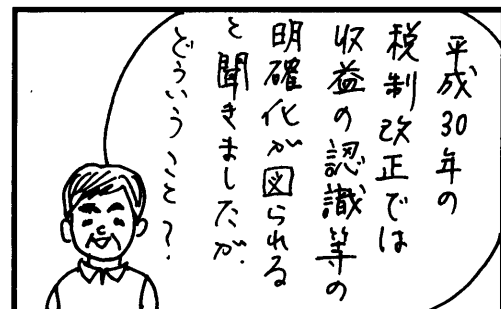 平成30年の
税制改正では
収益の認識等の
明確化が図られる
と聞きましたが、
どういうこと？